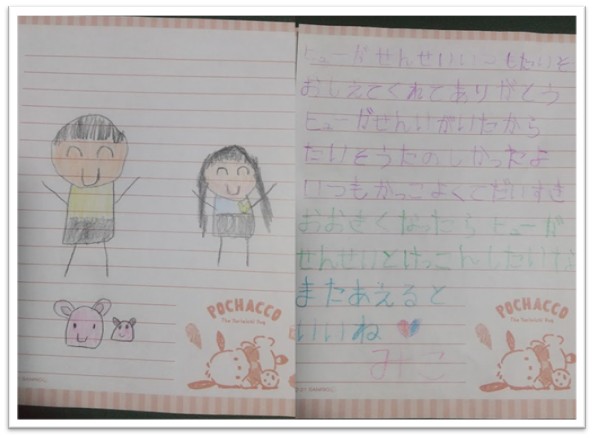 POCHACCO
ヒューがせんせいいつもたいそ
おしえてくれてありがとう
ヒューがせんいがいたから
たいそうたのしかったよ
いつもかっこよくてだいすき
おおきくなったらヒューが
せんせいとけっこんしたいな
またあえると
いいね
POCHACCO